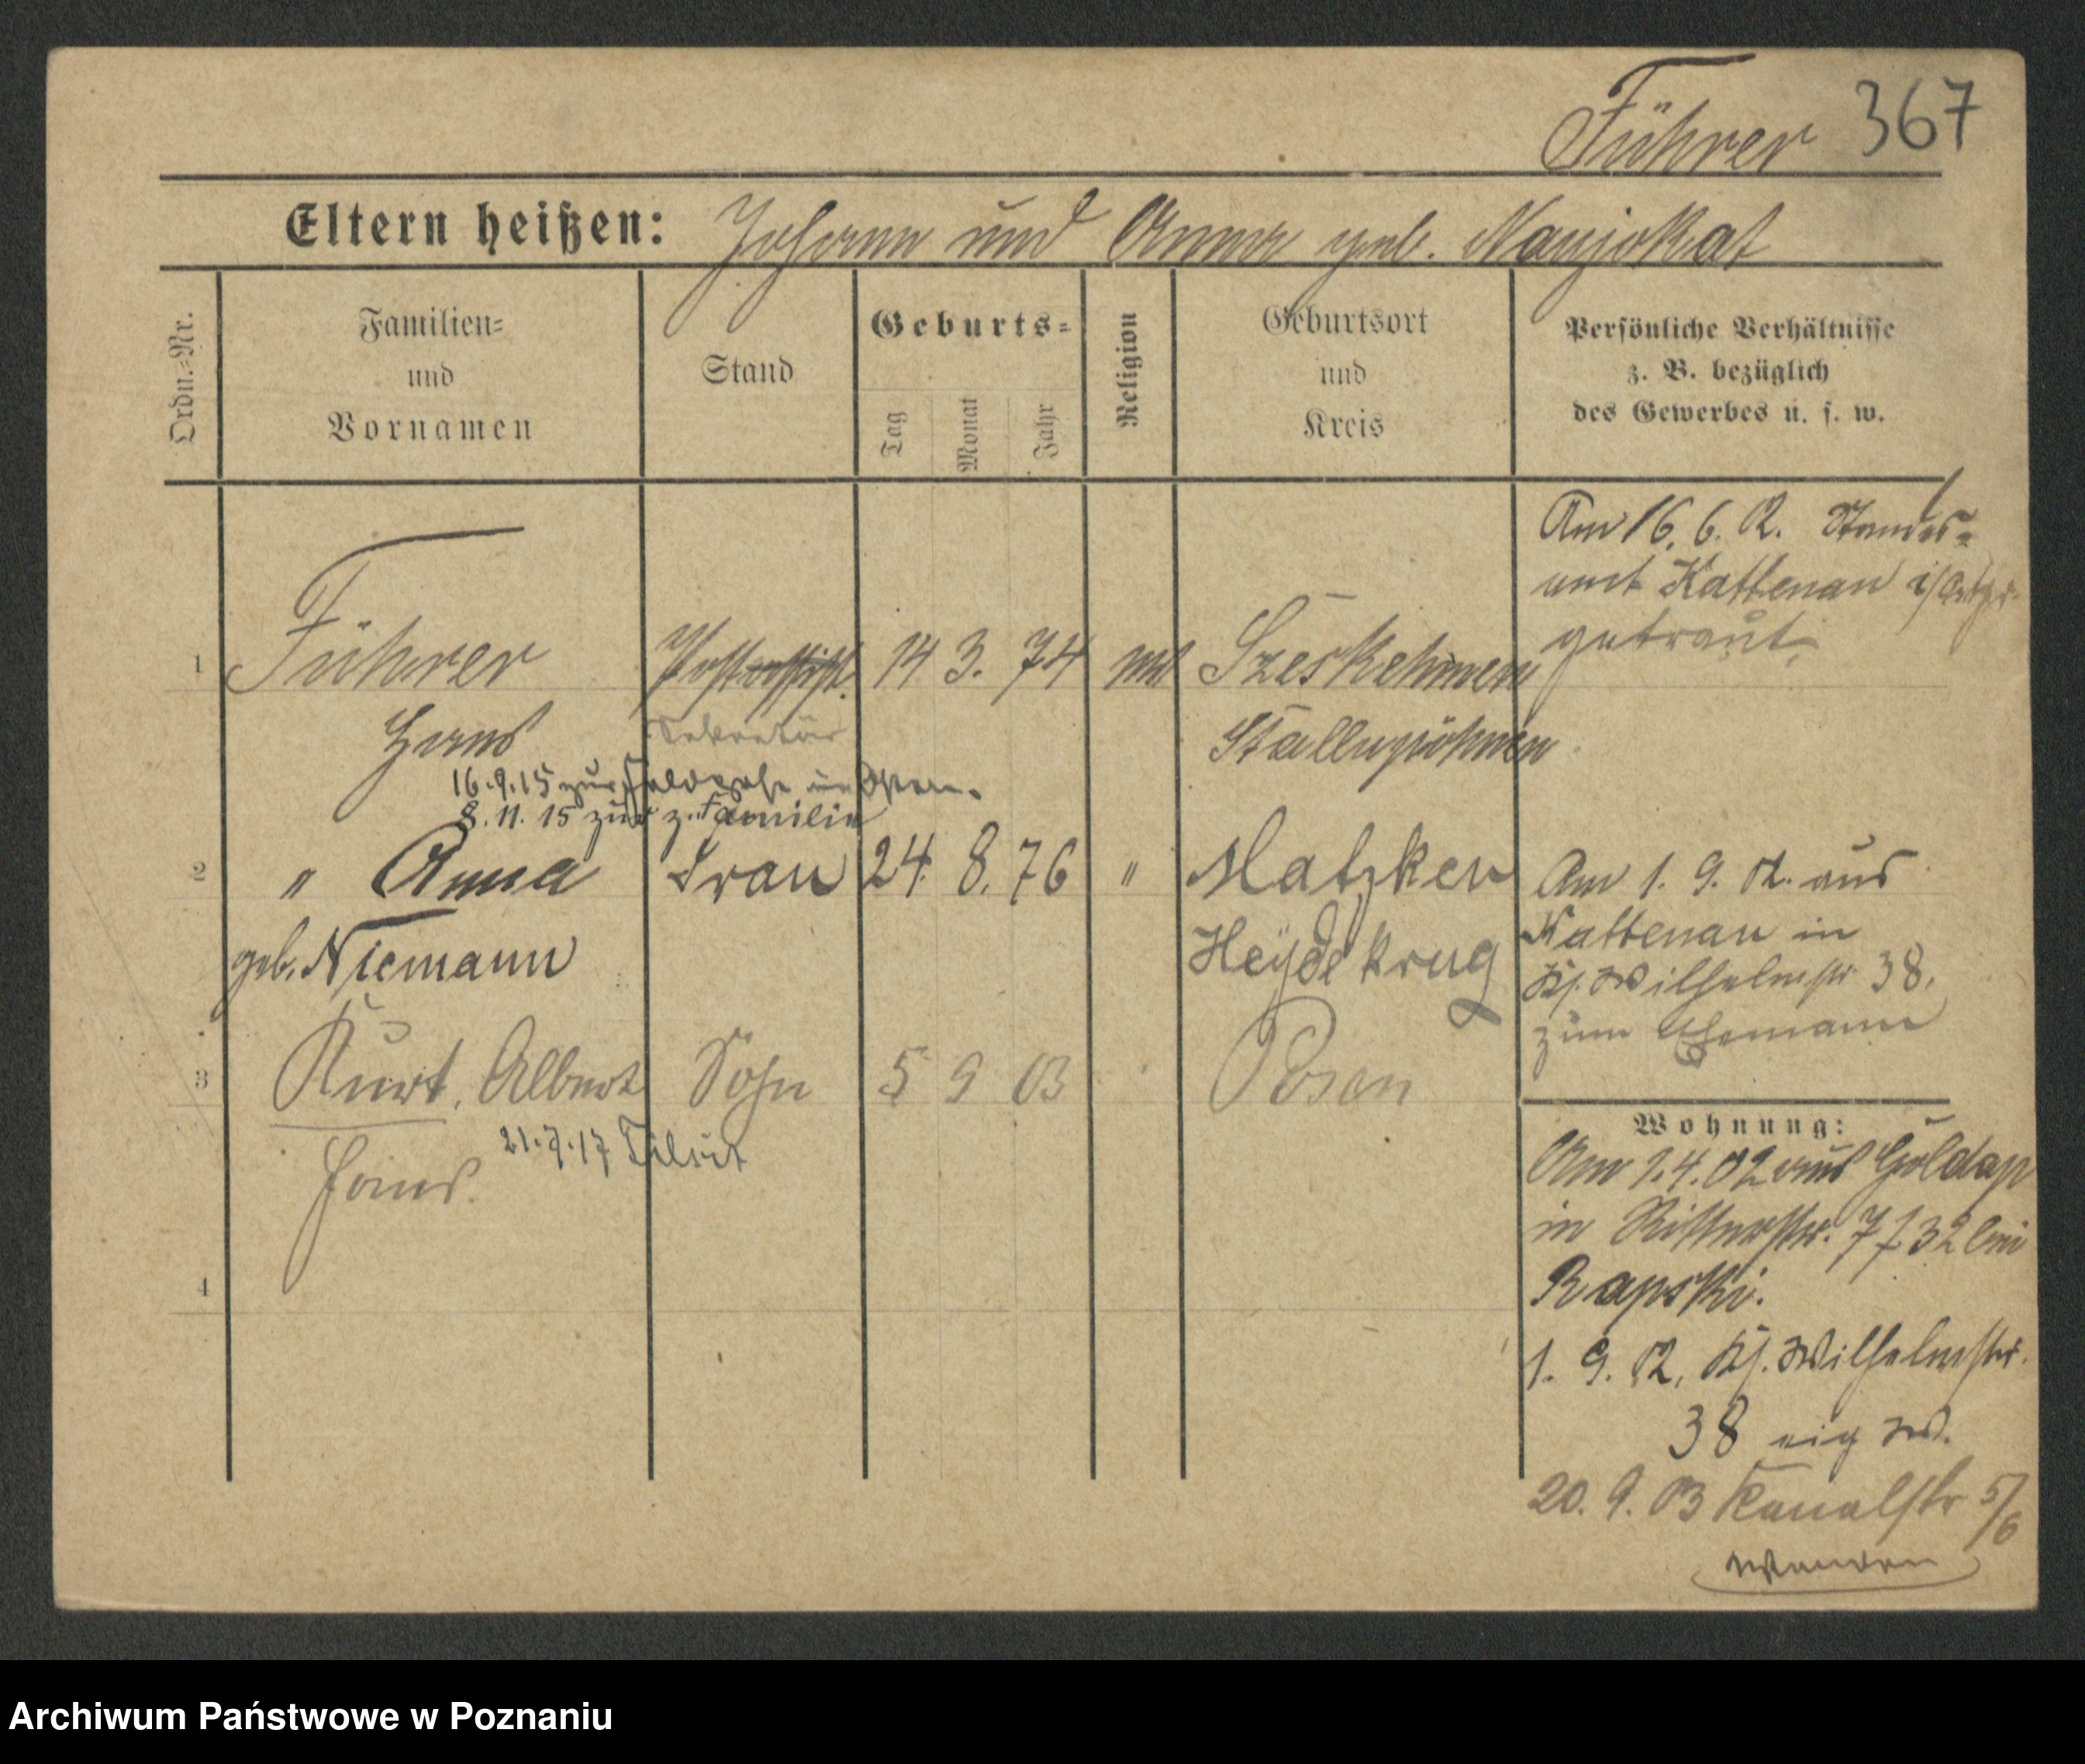 Führer 367
Eltern heißen: Johann und Anna geb. Naujokat
Ordn.=Nr.
Familien=
und
Vornamen
Stand
Geburts=
Tag
Monat
Jahr
Religion
Geburtsort
und
Kreis
Persönliche Verhältnisse
z. B. bezüglich
des Gewerbes u. s. w.
Am 16. 6. 02. Standes=
amt Kattenau
getraut.
1 Führer 14 3. 74 Szeskehmen
Sekretär
Hans
Stallupöhnen
16.9.15 zur
8. 11. 15 z. Familie
2 " Anna Frau 24. 8. 76 " Matzken
geb. Niemann
Heydekrug
Am 1. 9. 02. aus
Kattenau in
Kj. Wilhelmstr 38.
zum Ehemann
3 Kurt, Albert Sohn 5 9 03 Posen
Hans.
21.7.17 Tilsit
4
Wohnung:
Am 1.4.02 aus Goldap
in Ritterstr. 7 f. 32 bei
Rapski.
1. 9. 02, Kj. Wilhelmstr.
38 eig W.
20. 9. 03 Kanalstr 5/6
Archiwum Państwowe w Poznaniu